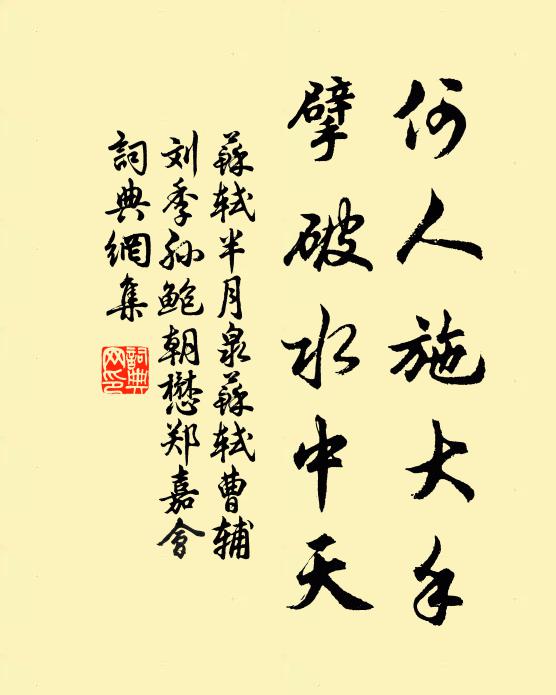 何人施大手
擘破水中天
蘇轼半月泉蘇轼曹輔
刘季孙鮑朝懋郑嘉會
詞典網集
詞典網印